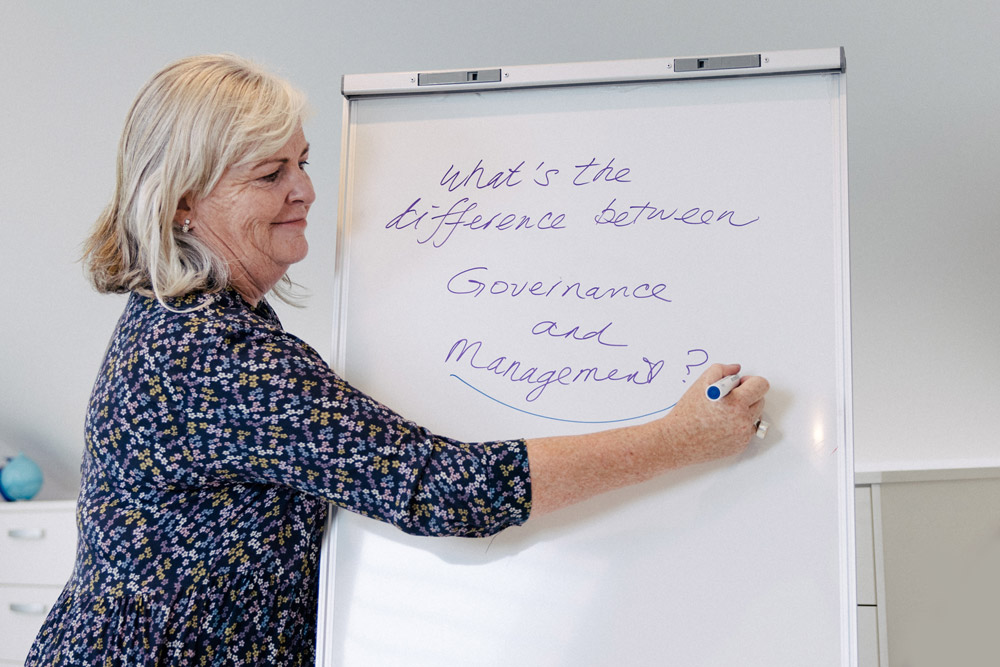 What's the
difference between
Governance
and
Management?